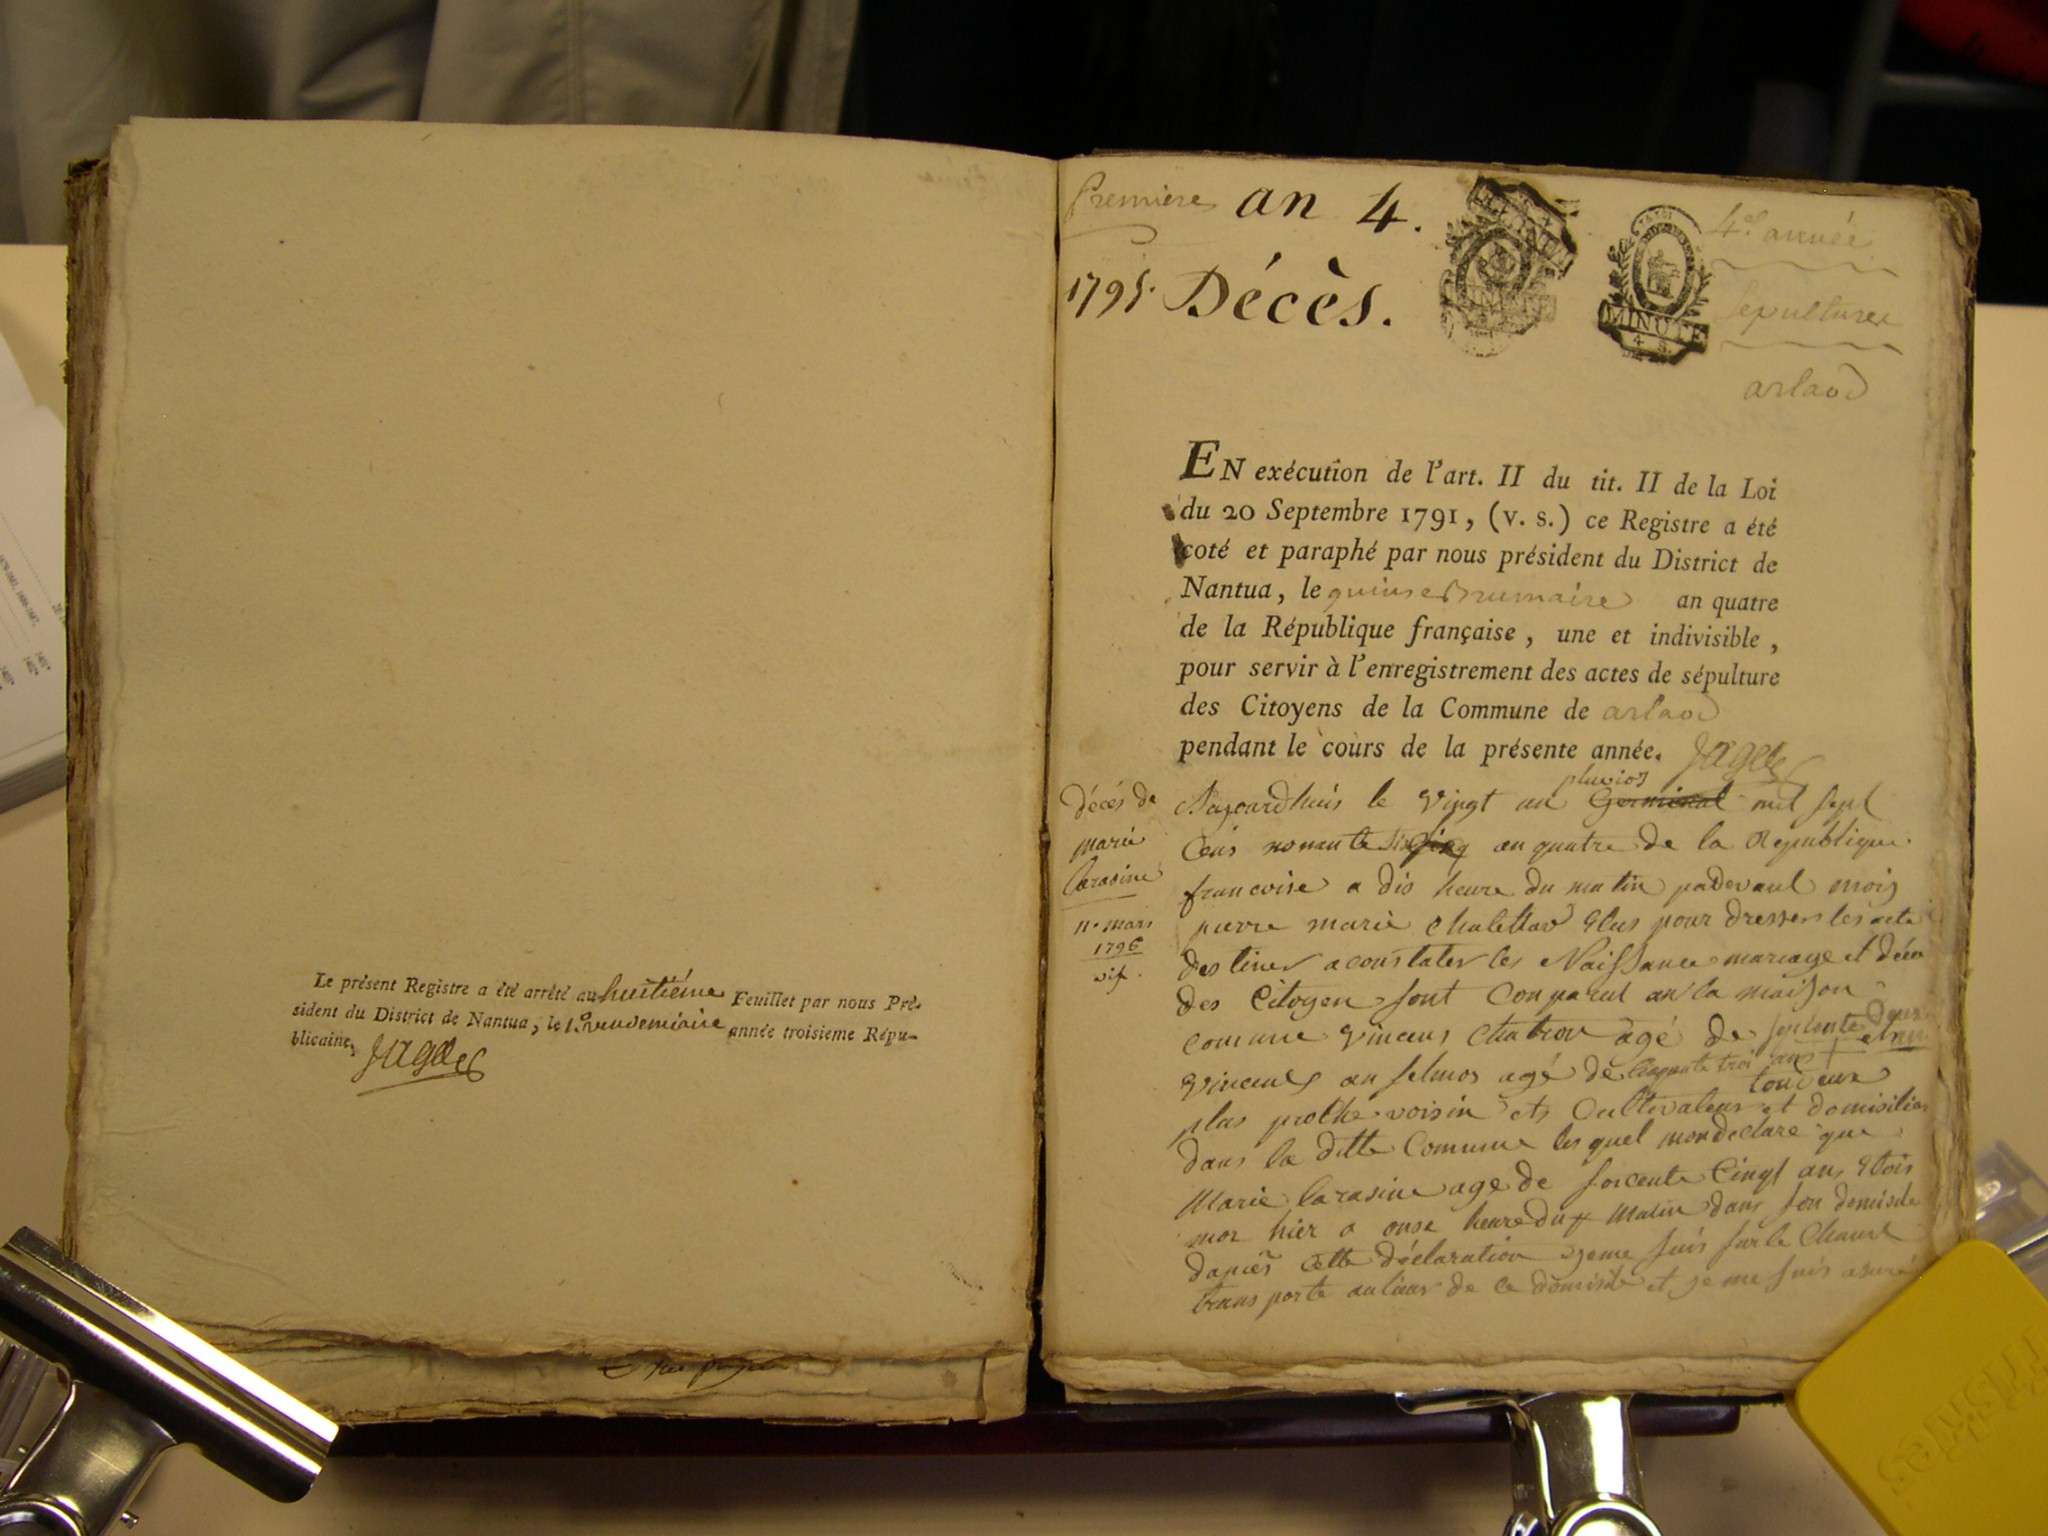 Le présent Registre a été arrêté au huitiéme Feuillet par nous Pré-
sident du District de Nantua, le 1.er vendemiaire année troisieme Répu-
blicaine,
Première an 4.
1795. Décès.
MINUTE
4 S.
4.e année
sepultures
arlaod
EN exécution de l'art. II du tit. II de la Loi
du 20 Septembre 1791, (v. s.) ce Registre a été
coté et paraphé par nous président du District de
Nantua, le quinse Brumaire an quatre
de la République française, une et indivisible,
pour servir à l'enregistrement des actes de sépulture
des Citoyens de la Commune de arlaod
pendant le cours de la présente année.
décès de
marie
Carasine
11. mars
1796
pluvios
Aujourdhuis le vingt un Germinal mil sept
Cens nonante six cinq an quatre de la Republique
francoise a dis heure du matin padevant mois
pierre marie Chalettav Elus pour dresser les acte
destiner a constater les Naissance mariage et déces
des Citoyen sont Conparut an la maison
comune Vincens Chatron agé de septente deux
Vincent anselmos agé de Cinquante troi ans tout eux
plus proche voisin et Cultivateur et domisilier
dans la ditte Commune les quel mon declare que
Marie Carasine age de soicente Cingt ans Etois
mor hier a onse heure du matin dans son domisile
dapres cette déclaration je me suis sur le Chant
transporte au lieux de ce domisile et je me suis asuré